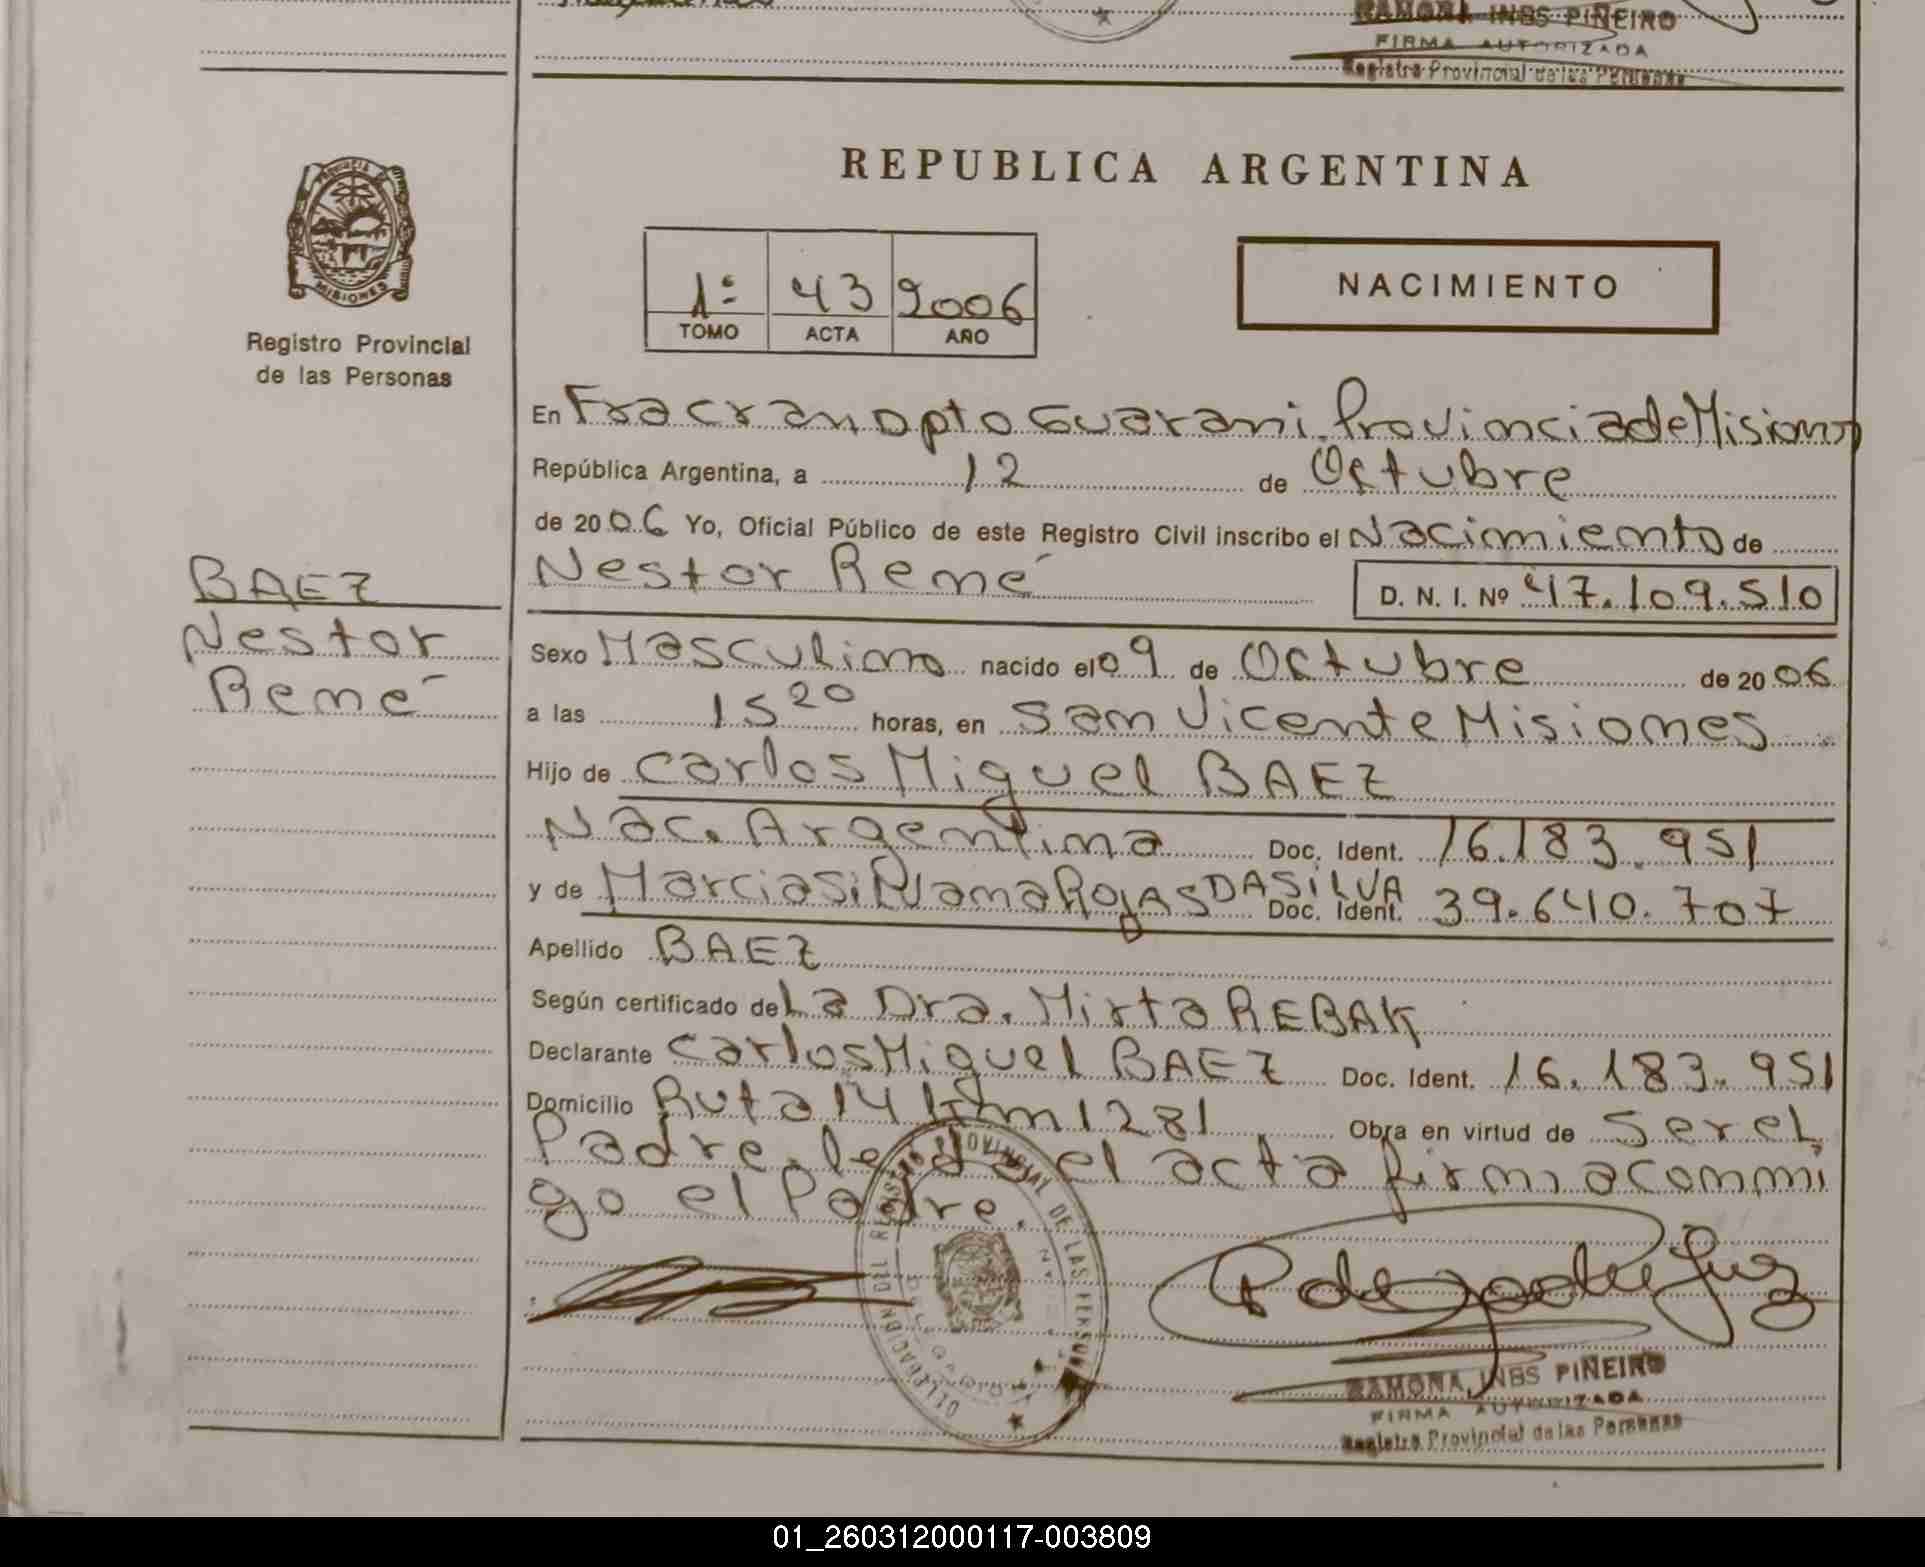 RAMONA INES PIÑEIRO
FIRMA AUTORIZADA
Registro Provincial de las Personas
PROVINCIA DE
MISIONES
Registro Provincial
de las Personas
REPUBLICA ARGENTINA
1º 43 2006
TOMO ACTA AÑO
NACIMIENTO
En Fracran Dpto Guarani Provincia de Misiones
República Argentina, a 12 de Octubre
de 2006 Yo, Oficial Público de este Registro Civil inscribo el Nacimiento de
Nestor René D. N. I. Nº 47.109.510
BAEZ
Nestor
René
Sexo Masculino nacido el 09 de Octubre de 2006
a las 15 20 horas, en San Vicente Misiones
Hijo de Carlos Miguel BAEZ
Nac. Argentina Doc. Ident. 16.183.951
y de Marcia Silvana ROJAS DA SILVA Doc. Ident. 39.640.707
Apellido BAEZ
Según certificado de La Dra. Mirta REBAK
Declarante Carlos Miguel BAEZ Doc. Ident. 16.183.951
Domicilio Ruta 14 Km 1281 Obra en virtud de ser el
Padre, leida el acta firma conmi
go el Padre.
DELEGACION DEL REGISTRO PROVINCIAL DE LAS PERSONAS
RAMONA INES PIÑEIRO
FIRMA AUTORIZADA
Registro Provincial de las Personas
01_260312000117-003809